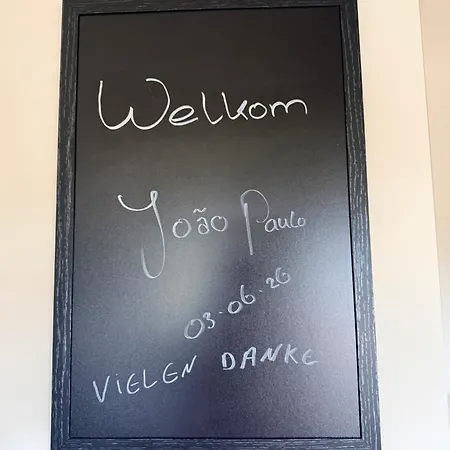 Welkom
João Paulo
03-06-26
VIELEN DANKE